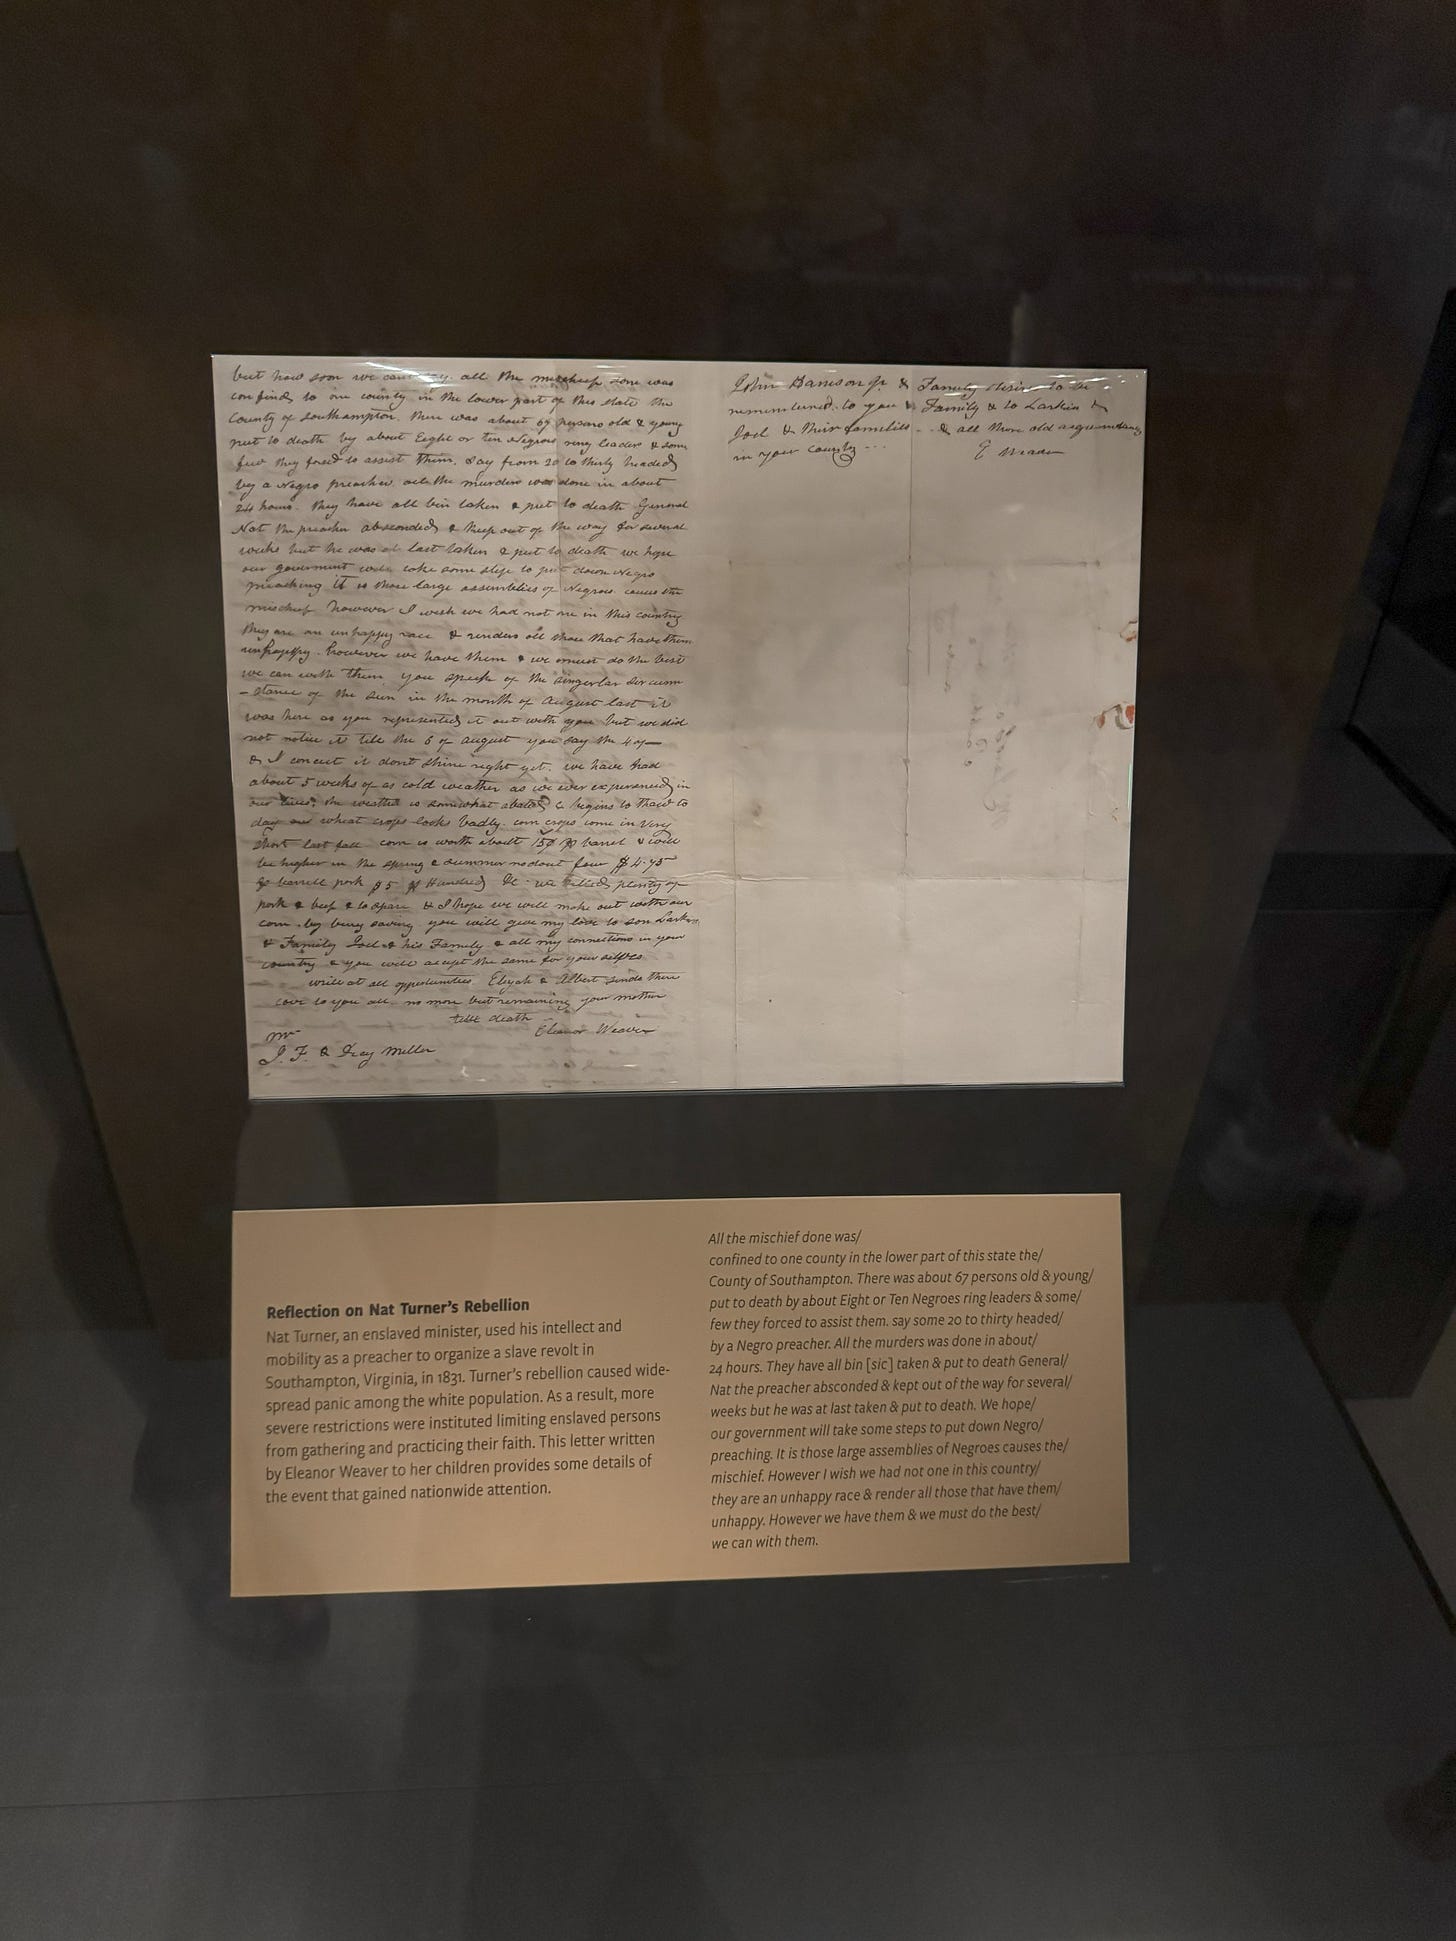 but how soon we cant say. all the mischief done was
confind to one county in the lower part of this state the
County of Southampton. there was about 67 persons old & young
put to death by about Eight or ten Negroes ring leaders & some
few they forsd to assist them. Say from 20 to thirty headed
by a Negro preacher all the murders was done in about
24 hours. they have all bin taken & put to death General
Nat the preacher absconded & keep out of the way for several
weeks but he was at last taken & put to death we hope
our goverment will take some steps to put down Negro
preaching it is those large assemblies of Negroes causes the
mischief however I wish we had not one in this country
they are an unhappy race & renders all those that have them
unhappy. however we have them & we must do the best
we can with them you speak of the singerlar sircum
-stance of the sun in the month of August last it
was here as you represented it out with you but we did
not notice it till the 6 of August you say the 4
& I conceit it dont shine right yet. we have had
about 5 weeks of as cold weather as we ever experienced in
our lives, the weather is somewhat abated & begins to thaw to
day our wheat crops looks badly. corn crops come in very
short last fall corn is worth about 15 barrel & will
be higher in the spring & summer nodout $4.75
barrell pork $5 Hundred &c we killed plenty of
pork & beef & to spare & I hope we will make out with our
corn by being saving you will give my love to son Larkin
& Family Joel & his Family & all my connections in your
country & you will accept the same for your selves
write at all oppertunities Elijah & Albert sends there
love to you all no more but remaining your mother
till death
Eleanor Weaver
Mr
J. F. & Miller
John Harrison Jr. & Family desire to be
remembered to you & Family & to Larkin &
Joel & their families & all there old
in your county
E Weaver
Reflection on Nat Turner's Rebellion
Nat Turner, an enslaved minister, used his intellect and
mobility as a preacher to organize a slave revolt in
Southampton, Virginia, in 1831. Turner's rebellion caused wide-
spread panic among the white population. As a result, more
severe restrictions were instituted limiting enslaved persons
from gathering and practicing their faith. This letter written
by Eleanor Weaver to her children provides some details of
the event that gained nationwide attention.
All the mischief done was/
confined to one county in the lower part of this state the/
County of Southampton. There was about 67 persons old & young/
put to death by about Eight or Ten Negroes ring leaders & some/
few they forced to assist them. say some 20 to thirty headed/
by a Negro preacher. All the murders was done in about/
24 hours. They have all bin [sic] taken & put to death General/
Nat the preacher absconded & kept out of the way for several/
weeks but he was at last taken & put to death. We hope/
our government will take some steps to put down Negro/
preaching. It is those large assemblies of Negroes causes the/
mischief. However I wish we had not one in this country/
they are an unhappy race & render all those that have them/
unhappy. However we have them & we must do the best/
we can with them.